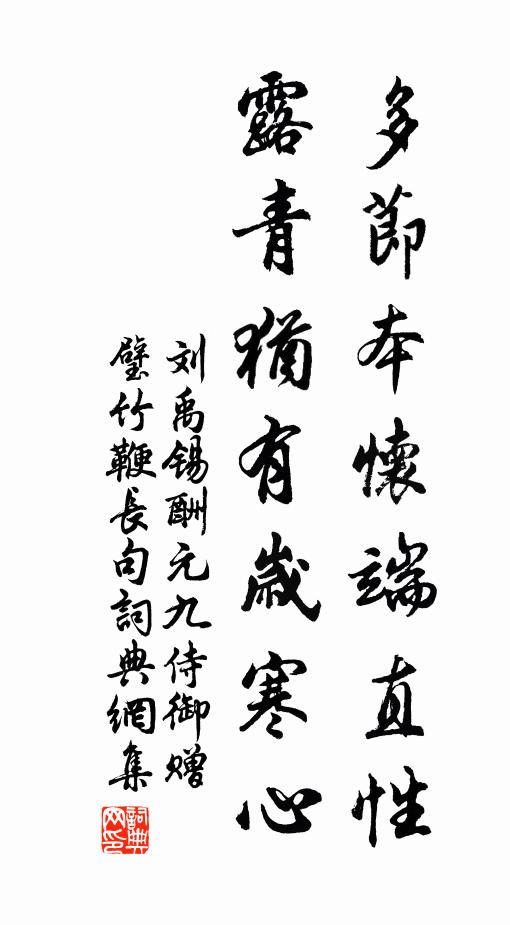 多節本懷端直性
露青猶有歲寒心
刘禹锡酬元九侍御赠
璧竹鞭長句詞典網集
詞典
网印